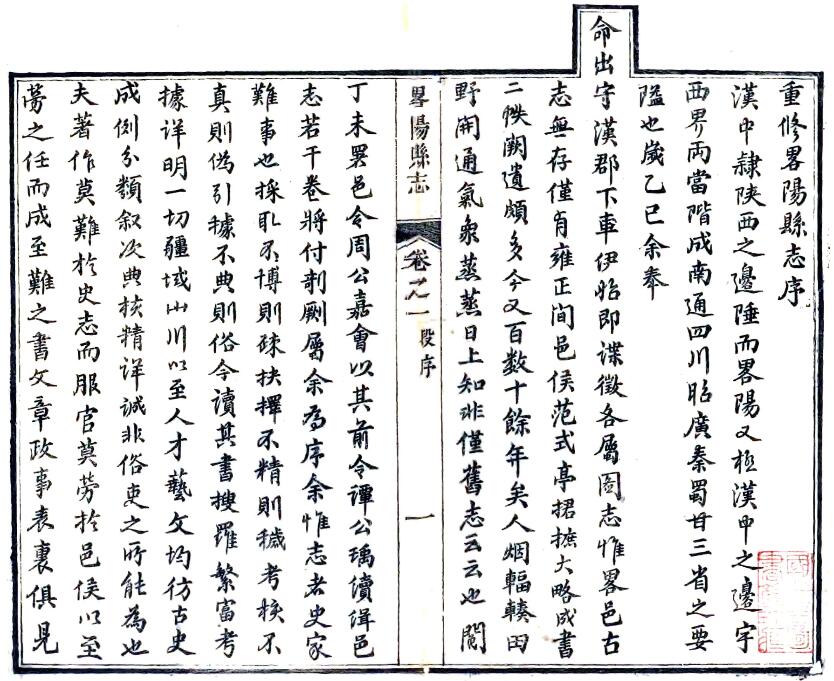 重修畧陽縣志序
漢中隷陕西之邊陲而畧陽又極漢中之邊宇
西界兩當階成南通四川昭廣秦蜀甘三省之要
隘也嵗乙巳余奉
命出守漢郡下車伊始即諜徵各屬圖志惟畧邑古
志無存僅有雍正间邑侯范式亭捃摭大略成書
二帙闕遺頗多今又百数十餘年矣人烟輻輳田
野開通氣象蒸蒸日上知非僅舊志云云也閣
畧陽縣志
卷之一
段序
一
丁未署邑令周公嘉會以其前令譚公瑀續緝邑
志若干卷將付剞劂屬余為序余惟志者史家
難事也採取不博則疎抉擇不精則穢考核不
真則偽引據不典則俗今讀其書搜羅繁富考
據详明一切疆域山川以至人才藝文均彷古史
成例分類叙次典核精详誠非俗吏之所能為也
夫著作莫難於史志而服官莫劳於邑侯以至
劳之任而成至難之書文章政事表裏俱見